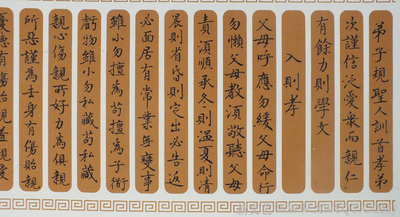 弟子規聖人訓首孝弟
次謹信泛愛眾而親仁
有餘力則學文
入則孝
父母呼應勿緩父母命行
勿懶父母教須敬聽父母
責須順承冬則溫夏則凊
晨則省昏則定出必告返
必面居有常業無變事
雖小勿擅為苟擅為子衜
虧物雖小勿私藏苟私藏
親心傷親所好力為俱親
所惡謹為去身有傷貽親
憂德有傷貽親羞親愛